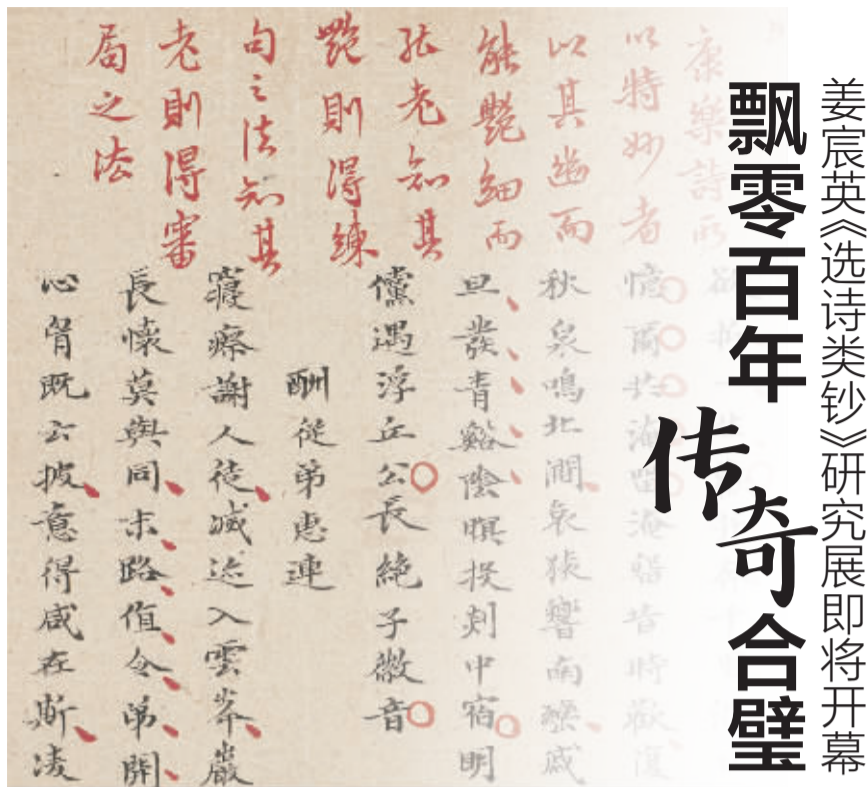 姜宸英《选诗类钞》研究展即将开幕
飘零百年
传奇
合璧
康樂詩所
以特妙者
以其幽而
能艷細而
能老知其
艷則得練
句之法知其
老則得審
局之法
憶爾淹留昔時歡復
秋泉鳴北澗哀猿響南巒戚
旦發青谿陰暝投剡中宿明
儻遇浮丘公長絶子徽音
酬從弟惠連
寢瘵謝人徒滅迹入雲峯巖
長懷莫與同末路值令弟開
心胷既云披意得咸在斯凌